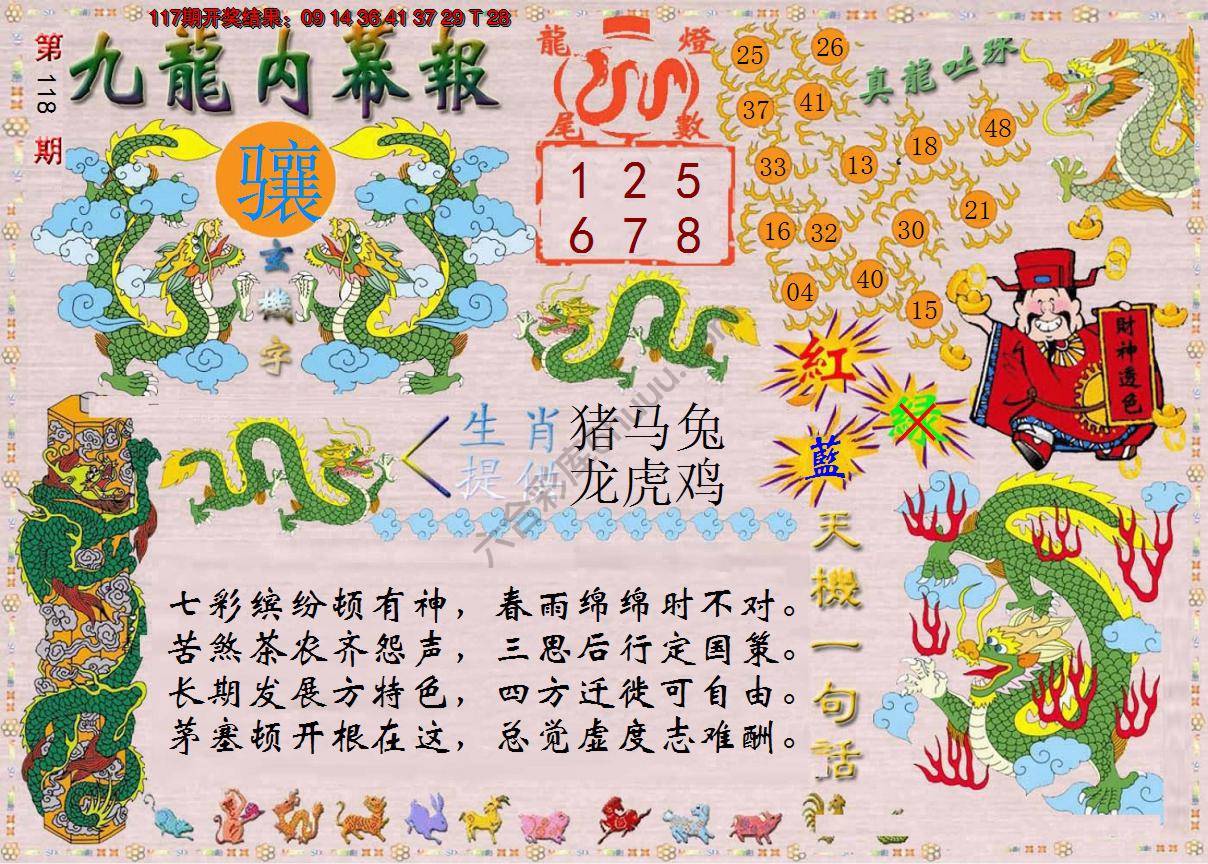 117期开奖结果：09 14 36 41 37 29 T 28
第118期
九龍内幕報
骧
玄機字
龍燈
尾數
1 2 5
6 7 8
真龍吐珠
25 26
37 41
33 13 18 48
16 32 30 21
04 40 15
財神透色
紅
绿
藍
生肖
提供
猪马兔
龙虎鸡
天機一句話
七彩缤纷顿有神，春雨绵绵时不对。
苦煞茶农齐怨声，三思后行定国策。
长期发展方特色，四方迁徙可自由。
茅塞顿开根在这，总觉虚度志难酬。